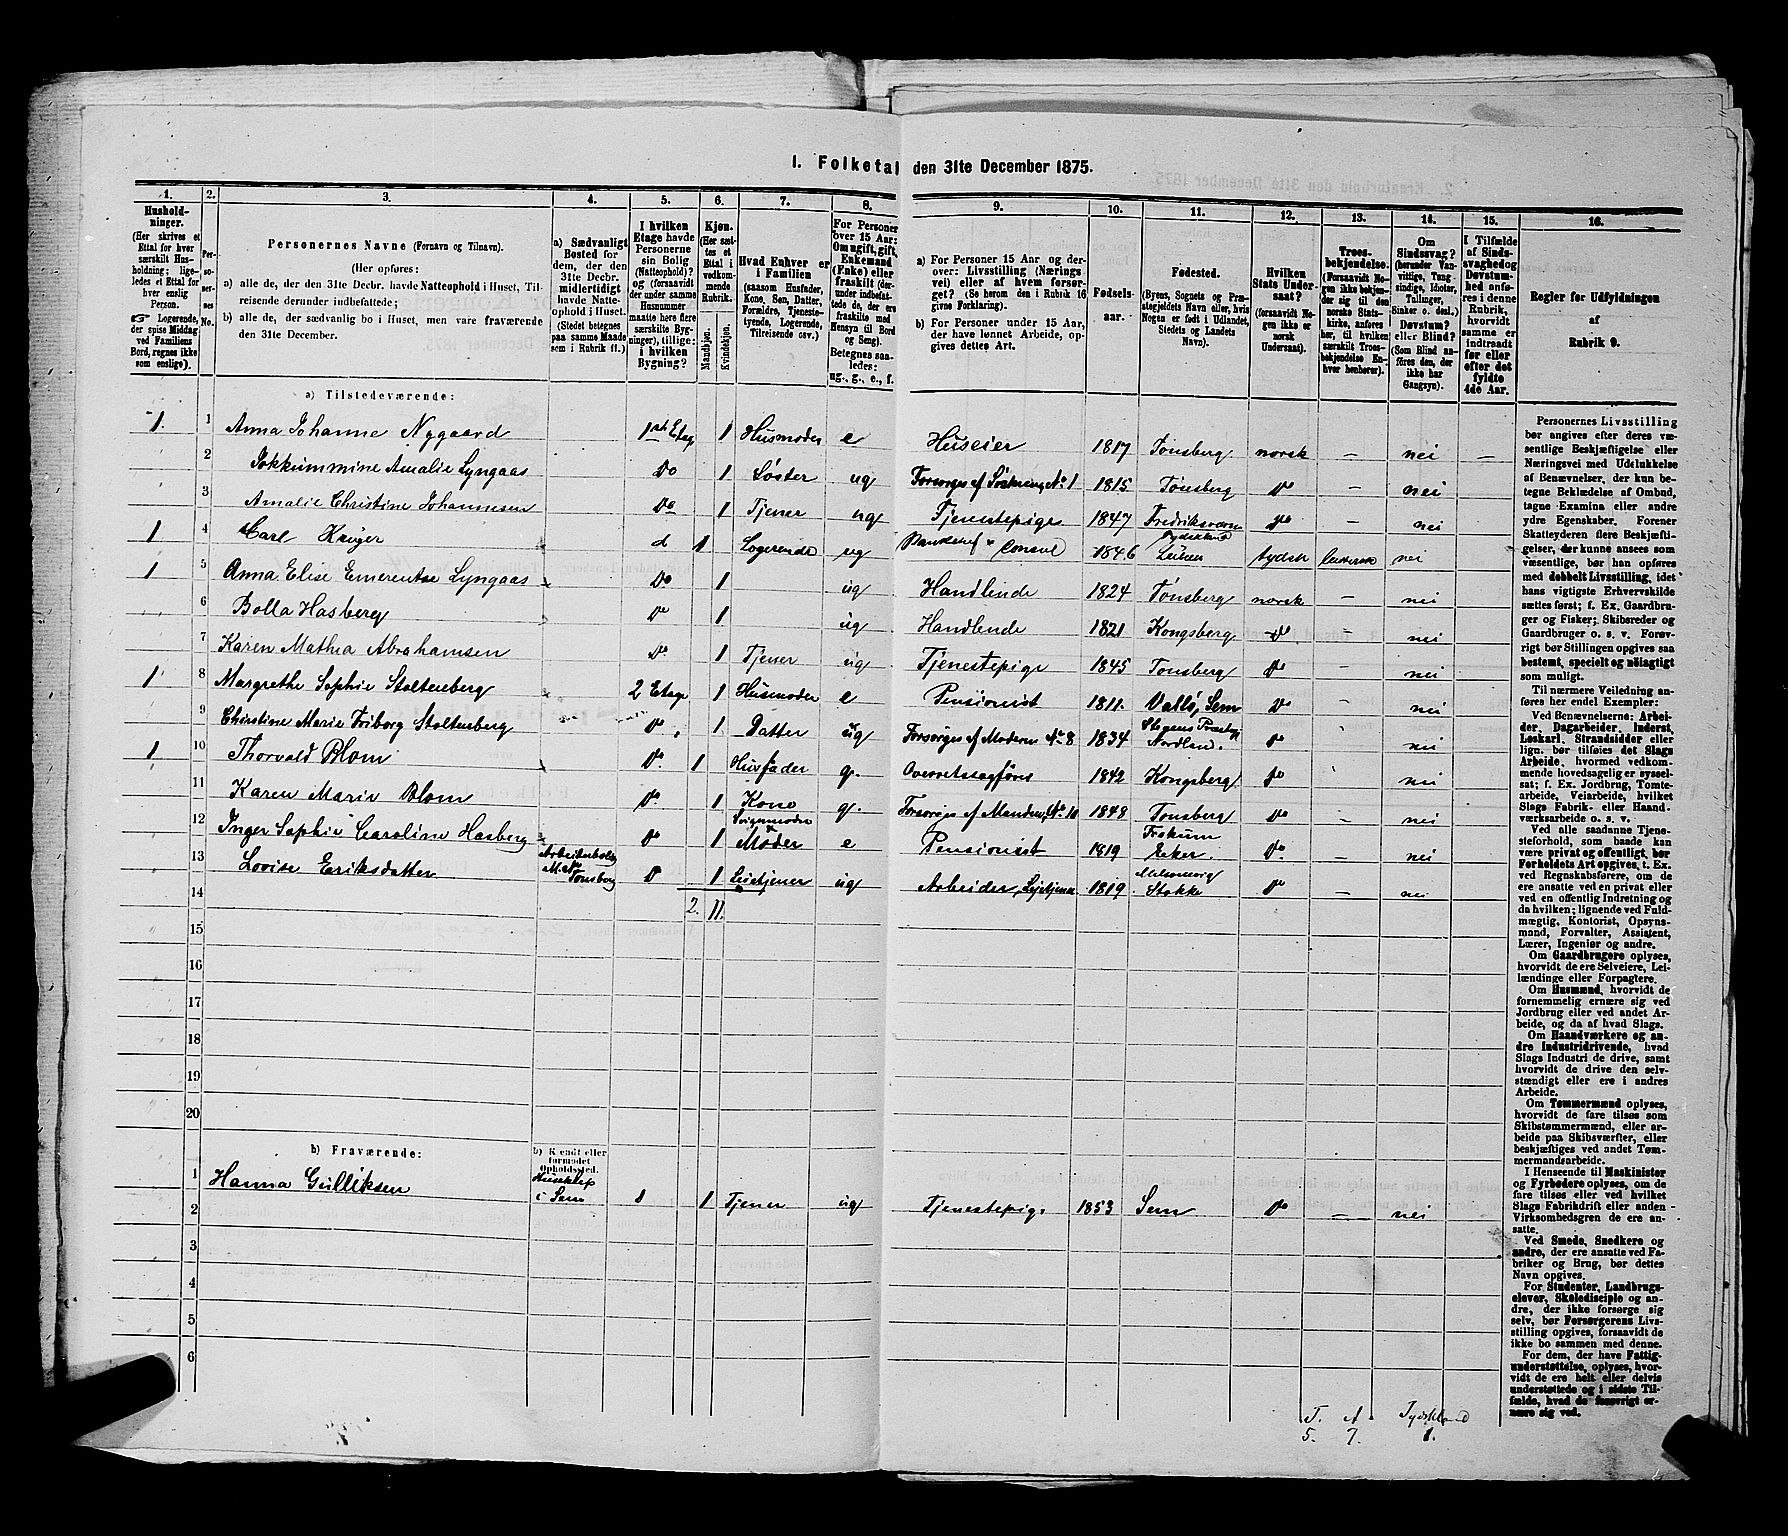 1. Folketal den 31te December 1875.
1. 2. 3. 4. 5. 6. 7. 8. 9. 10. 11. 12. 13. 14. 15. 16.
Husholdninger. (Her skrives et Ettal for hver særskilt Husholdning; ligeledes et Ettal for hver enslig Person. ☞ Logerende, der spise Middag ved Familiens Bord, regnes ikke som enslige).
Personernes No.
Personernes Navne (Fornavn og Tilnavn).
(Her opføres:
a) alle de, der den 31te Decbr. havde Natteophold i Huset, Tilreisende derunder indbefattede;
b) alle de, der sædvanlig bo i Huset, men vare fraværende den 31te December.
a) Sædvanligt Bosted for dem, der den 31te Decbr. midlertidigt havde Natteophold i Huset. (Stedet betegnes paa samme Maade som i Rubrik 11.)
I hvilken Etage havde Personerne sin Bolig (Natteophold)? og (forsaavidt der under samme Husnummer maatte høre flere særskilte Bygninger), tillige: i hvilken Bygning?
Kjøn. (Her sættes et Ettal i vedkommende Rubrik. Mandkjøn. Kvindekjøn.
Hvad Enhver er i Familien (saasom Husfader, Kone, Søn, Datter, Forældre, Tjenestetyende, Logerende, Tilreisende osv.)
For Personer over 15 Aar: Om ugift, gift, Enkemand (Enke) eller fraskilt (derunder indbefattede de, der ere fraskilte med Hensyn til Bord og Seng). Betegnes saaledes: ug., g., e., f.
a) For Personer 15 Aar og derover: Livsstilling (Næringsvei) eller af hvem forsørget? (Se herom den i Rubrik 16 givne Forklaring).
b) For Personer under 15 Aar, der have lønnet Arbeide, opgives dettes Art.
Fødselsaar.
Fødested. (Byens, Sognets og Præstegjeldets Navn eller, hvis Nogen er født i Udlandet, Stedets og Landets Navn).
Hvilken Stats Undersaat? (forsaavidt Nogen ikke er norsk Undersaat).
Troesbekjendelse. (Forsaavidt Nogen ikke bekjender sig til den norske Statskirke, anføres her, til hvilken særskilt Troesbekjendelse Enhver henhører).
Om Sindssvag? (herunder Vanvittige, Tungsindige, Idioter, Tullinger, Sinker o. desl.) Døvstum? eller Blind? (Som Blind anføres den, der ikke har Gangsyn).
I Tilfælde af Sindssvaghed og Døvstumhed anføres i denne Rubrik, hvorvidt samme er indtraadt før eller efter det fyldte 4de Aar.
Regler for Udfyldningen af Rubrik 9.
a) Tilstedeværende:
1. 1 Anna Johanne Nygaard 1ste Etage 1 Husmoder e Huseier 1817 Tønsberg norsk — nei —
2 Jokkummine Amalie Lyngaas Do 1 Søster ug Forsørges af Søsteren, No 1 1815 Tønsberg Do — nei
3 Amalie Christine Johannesen Do 1 Tjener ug Tjenestepige 1847 Fredriksværn Do — nei
1 4 Carl Krüger d 1 Logerende ug Consul 1846 Tydskland tydsk nei
1 5 Anna Elise Emerentse Lyngaas Do 1 ug Handlende 1824 Tønsberg norsk — nei
6 Bolla Hasberg Do 1 ug Handlende 1821 Kongsberg Do — nei
7 Karen Mathea Abrahamsen Do 1 Tjener ug Tjenestepige 1845 Tønsberg Do — nei
1 8 Margrethe Sophie Stoltenberg 2 Etage 1 Husmoder e Pensionist 1811 Vallø, Sem Do — nei
9 Christine Marie Friborg Stoltenberg Do 1 Datter ug Forsørges af Moderen No 8 1834 Nordlan. Do nei
1 10 Thorvald Blom Do 1 Husfader g. Overretssagfører 1842 Kongsberg Do nei
11 Karen Marie Blom Do 1 Kone g. Forsørges af Manden, No 10 1848 Tønsberg Do — nei
12 Inger Sophie Caroline Hasberg Do 1 Svigermoder Moder e Pensionist 1819 Fiskum Eker. Do. — nei
13 Lovise Eriksdatter Arbeiderbolig Tønsberg D 1 Leietjener ug Arbeider, Leietjener 1819 Stokke Do — nei
14 2. 11.
15
16
17
18
19
20
b) Fraværende:
b) Kjendt eller formodet Opholdssted.
1 Hanna Gulliksen i Sem 1 1 Tjener ug Tjenestepige 1853 Sem Do — nei
2
3
4
5
6
T. A. Tydskland
5. 7. 1.
Personernes Livsstilling bør angives efter deres væsentlige Beskjæftigelse eller Næringsvei med Udelukkelse af Benævnelser, der kun betegne Beklædelse af Ombud, tagne Examina eller andre ydre Egenskaber. Forener Skatteyderen flere Beskjæftigelser, der kunne ansees som væsentlige, bør han opføres med dobbelt Livsstilling, idet hans vigtigste Erhvervskilde sættes først; f. Ex. Gaardbruger og Fisker; Skibsreder og Gaardbruger o. s. v. Forøvrigt bør Stillingen opgives saa bestemt, specielt og nøiagtigt som muligt.
Til nærmere Veiledning anføres her endel Exempler:
Ved Benævnelserne: Arbeider, Dagarbeider, Inderst, Løskarl, Strandsidder eller lign. bør tilføies det Slags Arbeide, hvormed vedkommende hovedsagelig er sysselsat; f. Ex. Jordbrug, Tomtearbeide, Veiarbeide, hvilket Slags Fabrik- eller Haandværksarbeide o. s. v.
Ved alle saadanne Tjenesteforhold, som baade kan være privat og offentligt, bør Forholdets Art opgives, t. Ex. ved Regnskabsførere, om de ere ansatte ved en privat eller ved en offentlig Indretning og da hvilken; lignende ved Fuldmægtig, Kontorist, Opsynsmand, Forvalter, Assistent, Lærer, Ingeniør og andre.
Om Gaardbrugere oplyses, hvorvidt de ere Selveiere, Leilændinge eller Forpagtere.
Om Husmænd, hvorvidt de fornemmelig ernære sig ved Jordbrug eller ved andet Arbeide, og da af hvad Slags.
Om Haandværkere og andre Industridrivende, hvad Slags Industri de drive, samt hvorvidt de drive den selvstændigt eller ere i andres Arbeide.
Om Tømmermænd oplyses, hvorvidt de fare tilsøs som Skibstømmermænd, eller arbeide paa Skibsværfter, eller beskjæftiges ved andet Tømmermandsarbeide.
I Henseende til Maskinister og Fyrbødere oplyses, om de fare tilsøs eller ved hvilket Slags Fabrikdrift eller anden Virksomhedsgren de ere ansatte.
Ved Smede, Snedkere og andre, der ere ansatte ved Fabriker og Brug, bør dettes Navn opgives.
For Studenter, Landbrugselever, Skoledisciple og andre, der ikke forsørge sig selv, bør Forsørgerens Livsstilling opgives, forsaavidt de ikke bo sammen med denne.
For dem, der have Fattigunderstøttelse, oplyses, hvorvidt de ere helt eller delvis understøttede og i sidste Tilfælde, hvad de forøvrigt ernære sig ved.